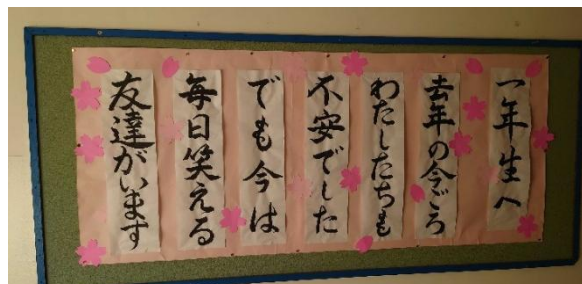 一年生へ
去年の今ごろ
わたしたちも
不安でした
でも今は
毎日笑える
友達がいます